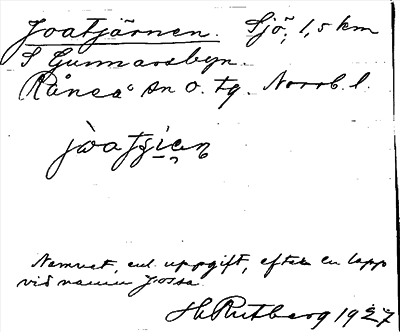 Joatjärnen. Sjö, 1,5 km
S Gunnarsbyn.
Råneå sn o. tg. Norrb. l.
jòatjɛ̣n
Namnet, enl. uppgift, efter en lapp
vid namn Jossa.
H Rutberg 1927